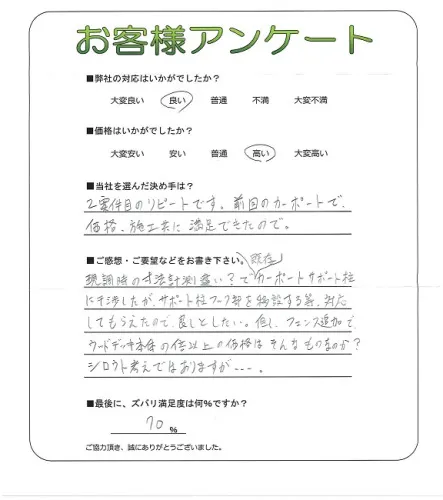 お客様アンケート
■弊社の対応はいかがでしたか?
大変良い 良い 普通 不満 大変不満
■価格はいかがでしたか?
大変安い 安い 普通 高い 大変高い
■当社を選んだ決め手は?
2案件目のリピートです。前回のカーポートで、
価格、施工共に満足できたので。
■ご感想・ご要望などをお書き下さい。
既存
現調時の寸法計測違い?でカーポートサポート柱
に干渉したが、サポート柱フック部を移設する等、対応
してもらえたので、良しとしたい。但し、フェンス追加で
ウッドデッキ本体の倍以上の価格はそんなものなのか?
シロウト考えではありますが---。
■最後に、ズバリ満足度は何%ですか?
70 %
ご協力頂き、誠にありがとうございました。